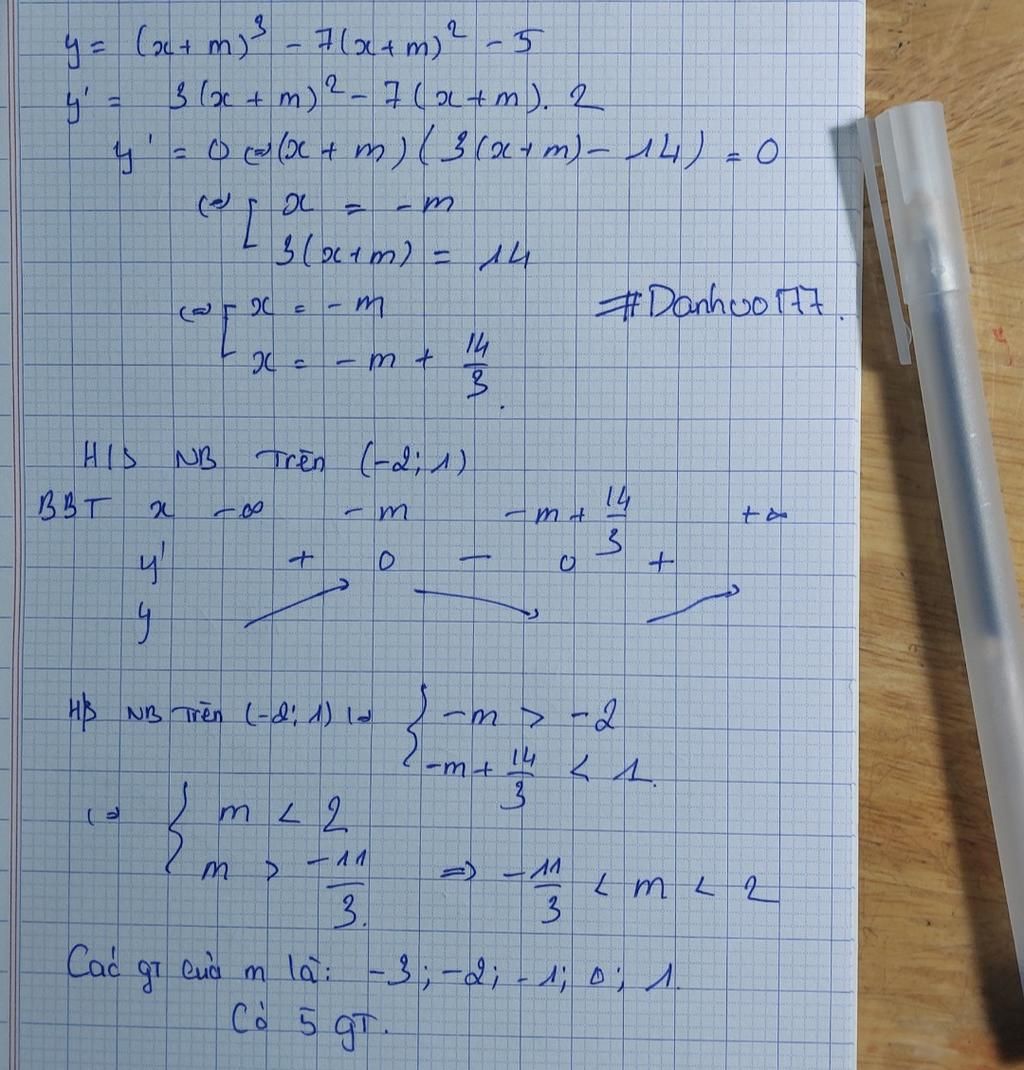 y = (x+m)³ - 7(x+m)² - 5
y' = 3(x+m)² - 7(x+m). 2
y' = 0 ⇔ (x+m)(3(x+m) - 14) = 0
⇔ [ x = -m
3(x+m) = 14
⇔ [ x = -m
#Danh00177.
x = -m + 14/3.
H/S NB Trên (-2; 1)
BBT x -∞ -m -m + 14/3 +∞
y' + 0 - 0 +
y
H/S NB Trên (-2; 1) ⇔ { -m > -2
-m + 14/3 < 1.
⇔ { m < 2
m > -11/3. ⇒ -11/3 < m < 2
Các gT của m là: -3; -2; -1; 0; 1.
Có 5 gT.